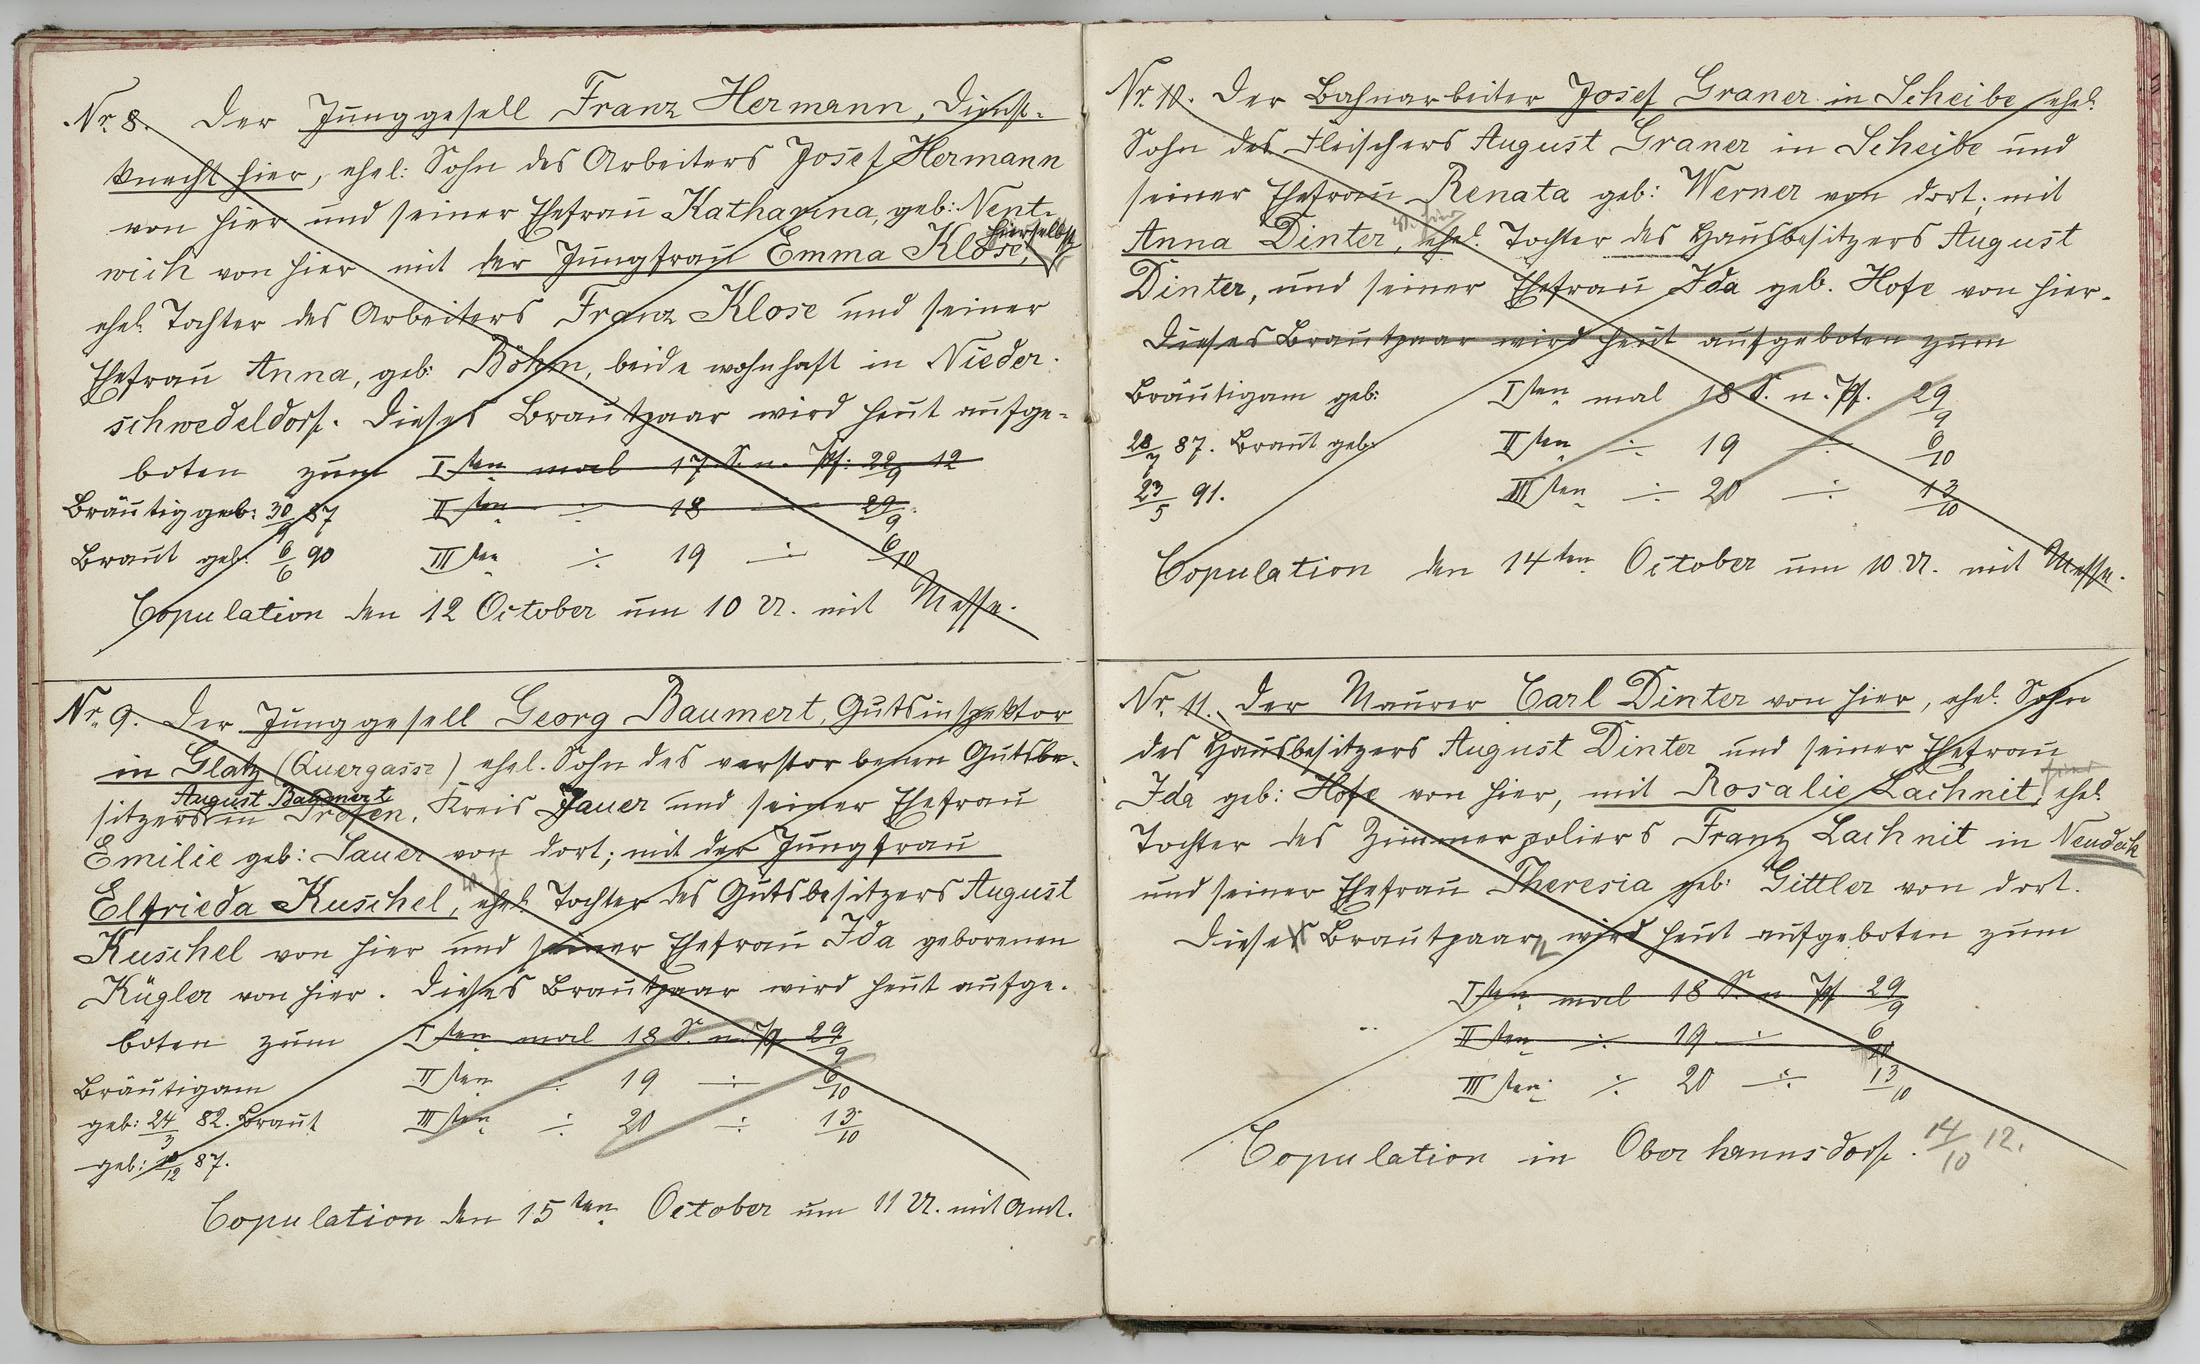 Nr. 8. Der Junggesell Franz Hermann, Dienst-
knecht hier, ehel: Sohn des Arbeiters Josef Hermann
von hier und seiner Ehefrau Katharina, geb: Nent-
wich von hier mit der Jungfrau Emma Klose, hierselbst
ehel. Tochter des Arbeiters Franz Klose und seiner
Ehefrau Anna, geb: Böhm, beide wohnhaft in Nieder-
schwedeldorf. Dieses Brautpaar wird heut aufge-
boten zum Isten mal 17 S. n. Pf: 22/9 12
Bräutig geb: 30/9 87 IIsten ÷ 18 ÷ 29/9
Braut geb. 6/6 90 IIIsten ÷ 19 ÷ 6/10
Copulation den 12 October um 10 U. mit Messe.
Nr. 9. Der Junggesell Georg Baumert, Gutsinspektor
in Glatz (Quergasse) ehel. Sohn des verstorbenen Gutsbe-
August Baumert
sitzers in Profen, Kreis Jauer und seiner Ehefrau
Emilie geb: Sauer von dort; mit der Jungfrau
Elfrieda Kuschel, ehel. Tochter des Gutsbesitzers August
Kuschel von hier und seiner Ehefrau Ida geborenen
Kügler von hier. Dieses Brautpaar wird heut aufge-
boten zum Isten mal 18 S. n. Pf 29/9
Bräutigam IIten ÷ 19 ÷ 6/10
geb: 24/3 82. Braut IIIten ÷ 20 ÷ 13/10
geb: 10/12 87.
Copulation den 15ten October um 11 U. mit Amt.
Nr. 10. Der Bahnarbeiter Josef Graner in Scheibe ehel.
Sohn des Fleischers August Graner in Scheibe und
seiner Ehefrau Renata geb: Werner von dort; mit
v. hier
Anna Dinter, ehel. Tochter des Hausbesitzers August
Dinter, und seiner Ehefrau Ida geb. Hofe von hier.
Dieses Brautpaar wird heut aufgeboten zum
Bräutigam geb: Isten mal 18 S. n. Pf. 29/9
28/7 87. Braut geb: IIsten ÷ 19 ÷ 6/10
23/5 91. IIIsten ÷ 20 ÷ 13/10
Copulation den 14ten October um 10 U. mit Messe.
Nr. 11. Der Maurer Carl Dinter von hier, ehel. Sohn
des Hausbesitzers August Dinter und seiner Ehefrau
Ida geb: Hofe von hier, mit Rosalie Lachnit, ehel.
Tochter des Zimmerpoliers Franz Lachnit in Neudeck
und seiner Ehefrau Theresia geb: Gittler von dort.
Dieses Brautpaar wird heut aufgeboten zum
Isten mal 18 S. n Pf 29/9
IIten ÷ 19 ÷ 6/10
IIIten ÷ 20 ÷ 13/10
Copulation in Oberhannsdorf. 14/10 12.